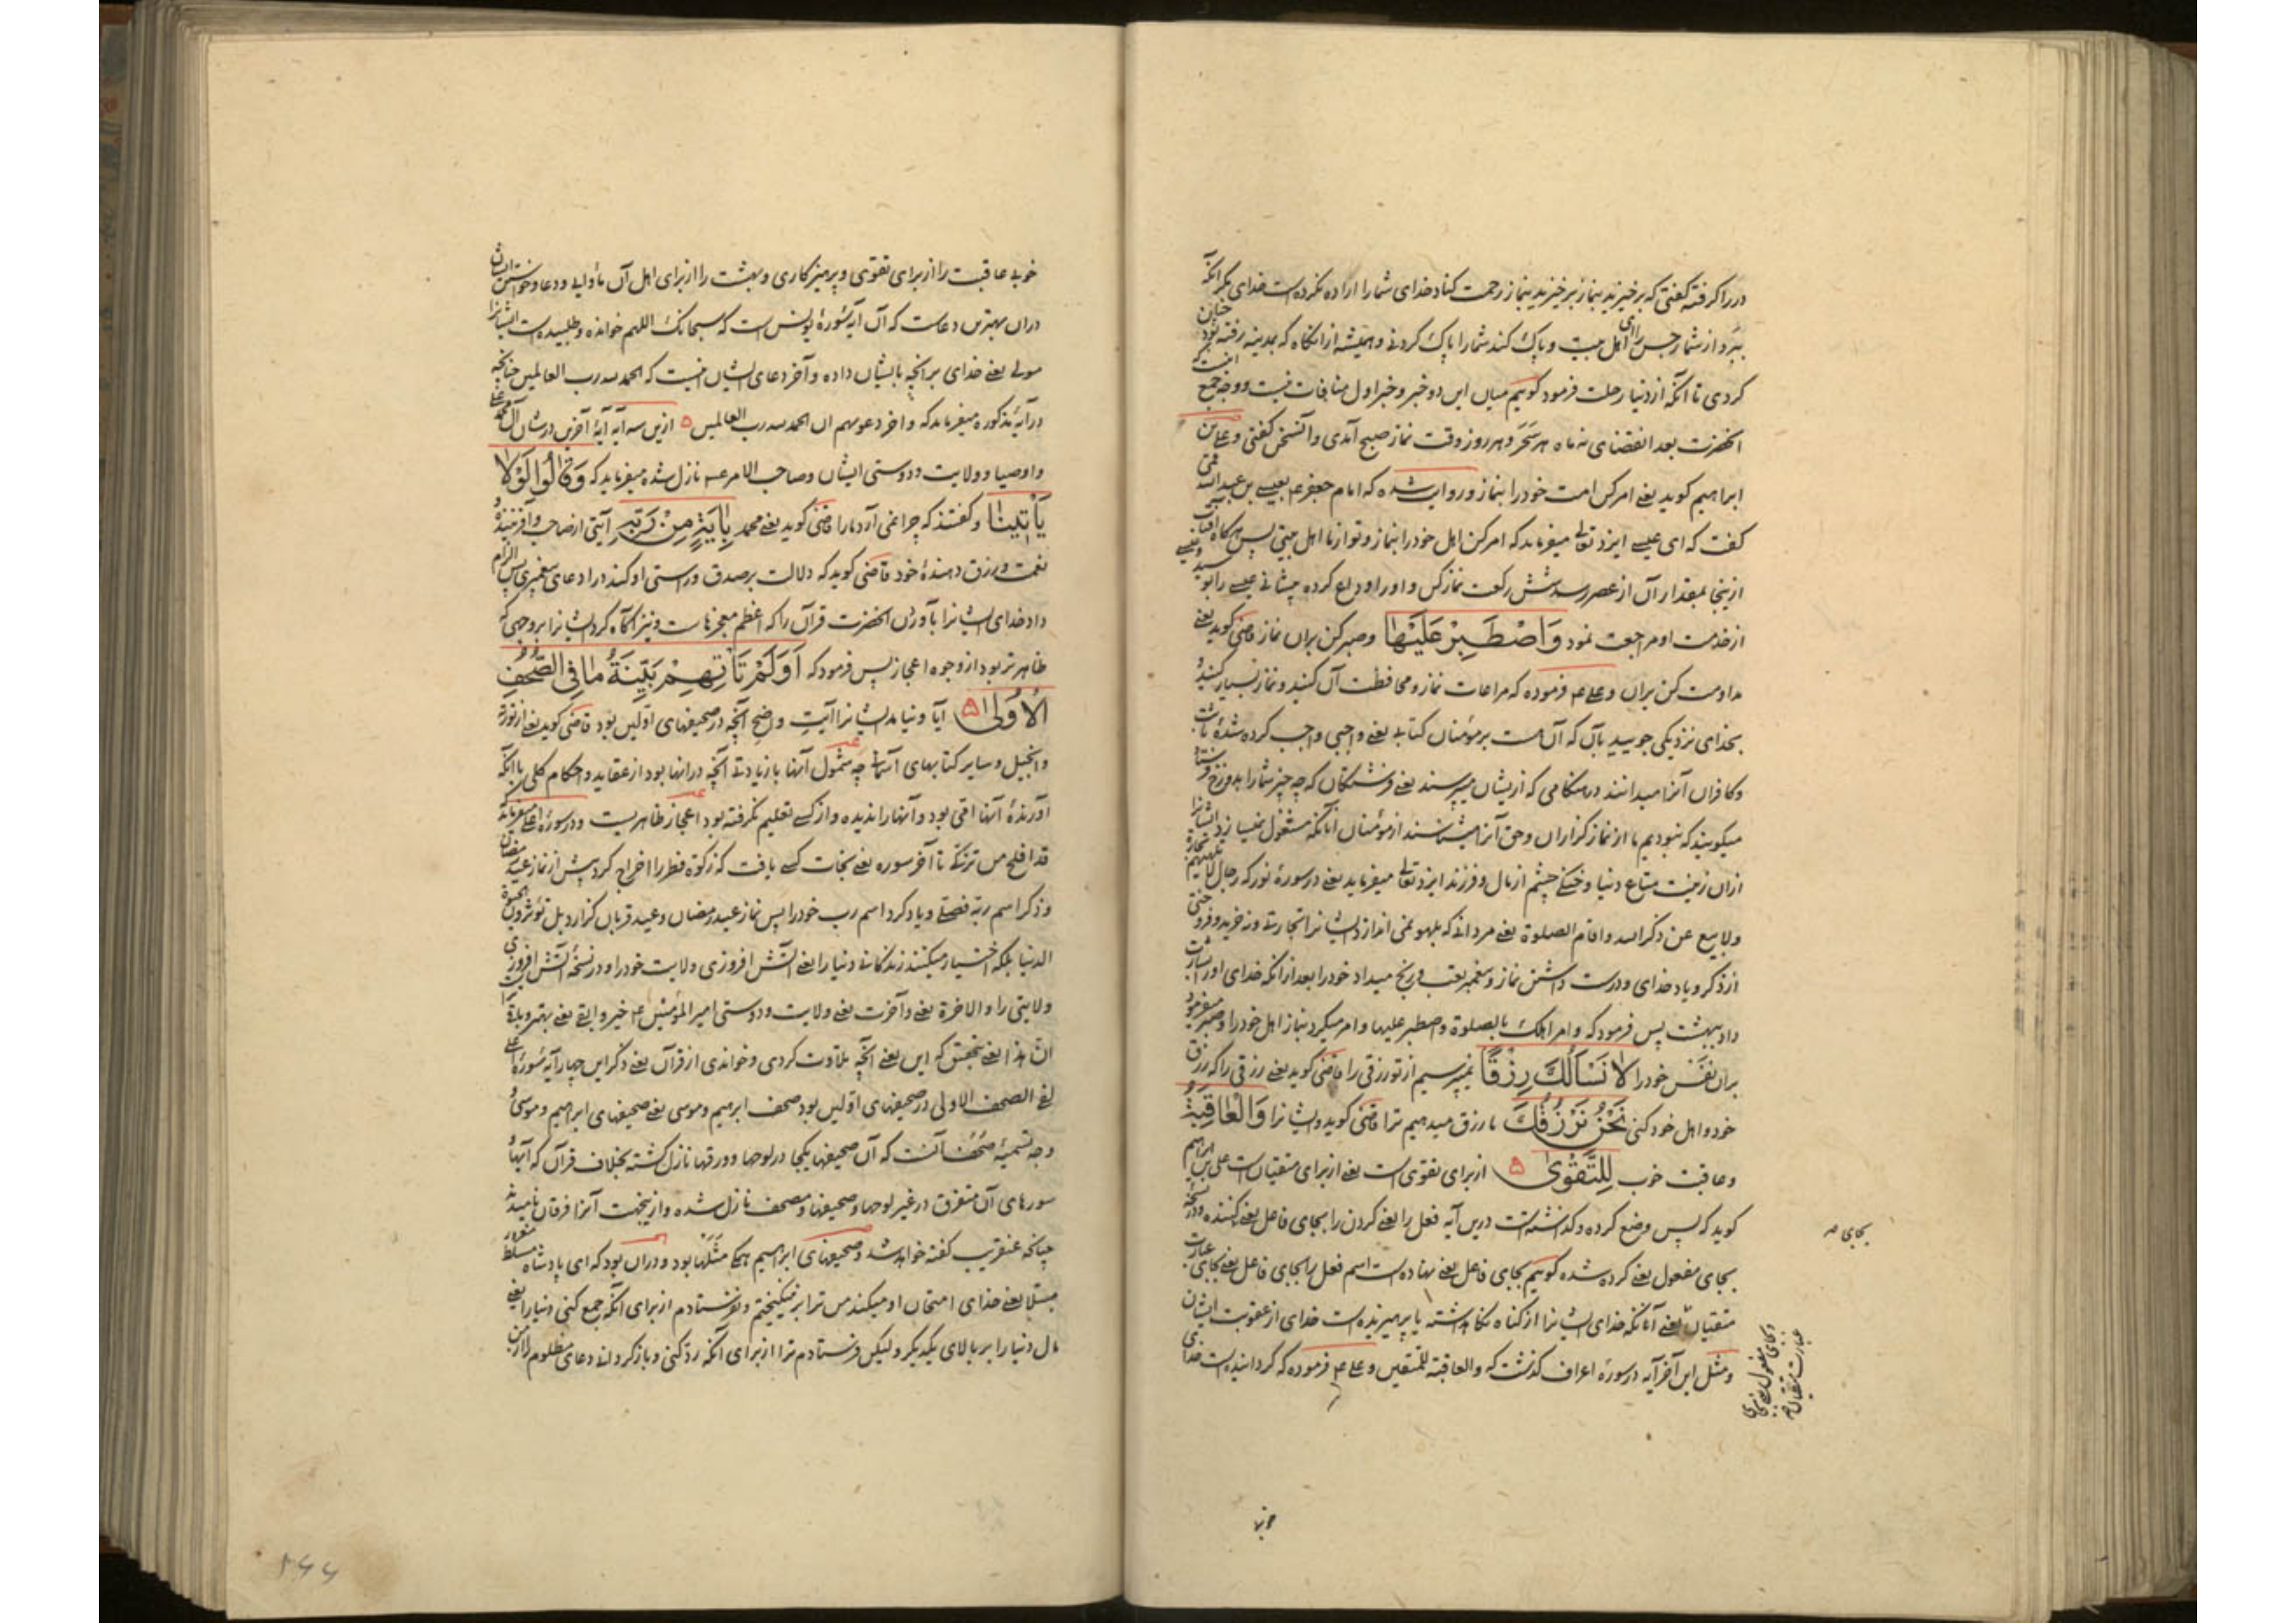 در را گرفته گفتی که برخیزید بنماز برخیزید بنماز رحمت کناد خدای شما را اراده نکرده است خدای مگر آنکه
ببرد از شما رجس را ای اهل بیت و پاک کند شما را پاک کردنی و همیشه از آنگاه که بمدینه رفته بود چنان
کردی تا آنکه از دنیا رحلت فرمود گوییم میان این دو خبر و خبر اول منافات نیست و وجه جمع اینست که
آنحضرت بعد انقضای نه ماه هر سحر و هر روز وقت نماز صبح آمدی و آن سخن گفتی و علی بن
ابراهیم گوید یعنی امر کن امت خود را بنماز و روایت شده که امام جعفر ع بعیسی بن عبدالله قمی
گفت که ای عیسی ایزد تعالی میفرماید که امر کن اهل خود را بنماز و تو از ما اهل بیتی پس هرگاه آفتاب
از اینجا بمقدار آن از عصر رسد شش رکعت نماز کن و او را وداع کرده پیشانی عیسی را بوسید و عیسی
از خدمت او مراجعت نمود وَاصْطَبِرْ عَلَيْهَا و صبر کن بران نماز قاضی گوید یعنی
مداومت کن بران و علی ع فرموده که مراعات نماز و محافظت آن کنید و نماز بسیار کنید و
بخدای نزدیکی جویید بآن که آن هست بر مؤمنان کتابی یعنی واجبی واجب کرده شده ثابت
و کافران آنرا میدانند در هنگامی که از یشان میپرسند یعنی فرشتگان که چه چیز شما را بدوزخ
میگویند که نبودیم ما از نماز گزاران و حق آنرا میشناسند از مؤمنان آنانکه مشغول نمیسازد ایشانرا
ازان زینت متاع دنیا و خنکی چشم از مال و فرزند ایزد تعالی میفرماید یعنی در سورهٔ نور که رجال لا تلهیهم تجارة
ولا بیع عن ذکر الله و اقام الصلوة یعنی مردانی که بلهو نمی اندازد ایشانرا تجارتی و نه خرید و فروختی
از ذکر و یاد خدای و درست داشتن نماز و پیغمبر بتعب و رنج میداد خود را بعد از آنکه خدای او را بشارت
داد ببهشت پس فرمود که وامر اهلک بالصلوة واصطبر علیها و امر میکرد بنماز اهل خود را و صبر میفرمود
بران نفس خود را لَا نَسْأَلُكَ رِزْقًا نمیپرسیم از تو رزقی را قاضی گوید یعنی رزقی را که رزق
خود و اهل خود کنی نَحْنُ نَرْزُقُكَ ما رزق میدهیم ترا قاضی گوید و ایشانرا وَالْعَاقِبَةُ
و عاقبت خوب لِلتَّقْوَىٰ از برای تقوی است یعنی از برای متقیان است علی بن ابراهیم
گوید که پس وضع کرده و گذاشته است درین آیه فعل را یعنی کردن را بجای فاعل یعنی کننده و در نسخه
بجای مفعول یعنی کرده شده گوییم بجای فاعل یعنی نهاده است اسم فعل را بجای فاعل یعنی بجای عبارت
متقیان یعنی آنانکه خدای ایشانرا از گناه نگاه داشته یا پرهیزیده است خدای از عقوبت ایشان
و مثل این آخر آیه در سورهٔ اعراف گذشت که والعاقبة للمتقین و علی ع فرموده که گردانیده است خدای
بجای
عبارت متقیان
خوبی
خوبی عاقبت را از برای تقوی و پرهیزکاری و بهشت را از برای اهل آن ماوایی و دعا و خواستن ایشان
دران بهترین دعاست که آن آیه سورهٔ یونس است که سبحانک اللهم خوانده و طلبیده است ایشانرا
مولی یعنی خدای بر آنچه بایشان داده و آخر دعای ایشان اینست که الحمد لله رب العالمین چنانچه
در آیهٔ مذکوره میفرماید که واخر دعویهم ان الحمد لله رب العالمین ازین سه آیه آیهٔ آخرین در شان آل محمد
و اوصیا و ولایت و دوستی ایشان و صاحب الامر نازل شده میفرماید که وَقَالُوا لَوْلَا
يَأْتِينَا و گفتند که چرا نمی آرد ما را قاضی گوید یعنی محمد بِآيَةٍ مِنْ رَبِّهِ آیتی از صاحب و آفریننده
نعمت و رزق دهندهٔ خود قاضی گوید که دلالت بر صدق و راستی او کند در ادعای پیغمبری پس الزام
داد خدای ایشانرا بآوردن آنحضرت قرآن را که اعظم معجزهاست و نیز آگاه کرد ایشانرا بر وجهی که
ظاهرتر بود از وجوه اعجاز پس فرمود که أَوَلَمْ تَأْتِهِمْ بَيِّنَةُ مَا فِي الصُّحُفِ
الْأُولَىٰ آیا و نیامد ایشانرا آیت واضح آنچه در صحیفهای اولین بود قاضی گوید یعنی از توریة
و انجیل و سایر کتابهای آسمانی چه شمول آنها با زیادتی آنچه در آنها بود از عقاید و احکام کلی با آنکه
آورندهٔ آنها امی بود و آنها را ندیده و از کسی تعلیم نگرفته بود اعجاز ظاهریست و در سورهٔ اعلی میفرماید که
قد افلح من تزکی تا آخر سوره یعنی نجات کسی یافت که زکوة فطر را اخراج کرد پیش از نماز عید رمضان
وذکر اسم ربه فصلی و یاد کرد اسم رب خود را پس نماز عید رمضان و عید قربان گزارد بل تؤثرون الحیوة
الدنیا بلکه اختیار میکنند زندگانی دنیا را یعنی آتش افروزی ولایت خود را و در نسخه آتش افروزی
ولایتی را والاخرة یعنی و آخرت یعنی ولایت و دوستی امیر المؤمنین ع خیر وابقی یعنی بهتر
ان هذا یعنی بتحقیق که این یعنی آنچه تلاوت کردی و خواندی از قرآن یعنی ذکر این چهار آیه سورهٔ اعلی
لفی الصحف الاولی در صحیفهای اولین بود صحف ابرهیم وموسی یعنی صحیفهای ابراهیم و موسی و
وجه تسمیهٔ صحف آنست که آن صحیفها یکجا در لوحها و ورقها نازل گشته بخلاف قرآن که آیها و
سورهای آن متفرق در غیر لوحها و صحیفها و مصحف نازل شده و ازینجهت آنرا فرقان نامیدند
چنانکه عنقریب گفته خواهد شد و صحیفهای ابراهیم همگی مثلها بود و دران بود که ای پادشاه مسلط مغرور
مبتلا یعنی خدای امتحان او میکند من ترا بر نینگیختم و نفرستادم از برای آنکه جمع کنی دنیا را یعنی
مال دنیا را بر بالای یکدیگر و لیکن فرستادم ترا از برای آنکه رد کنی و بازگردانی دعای مظلوم را از من